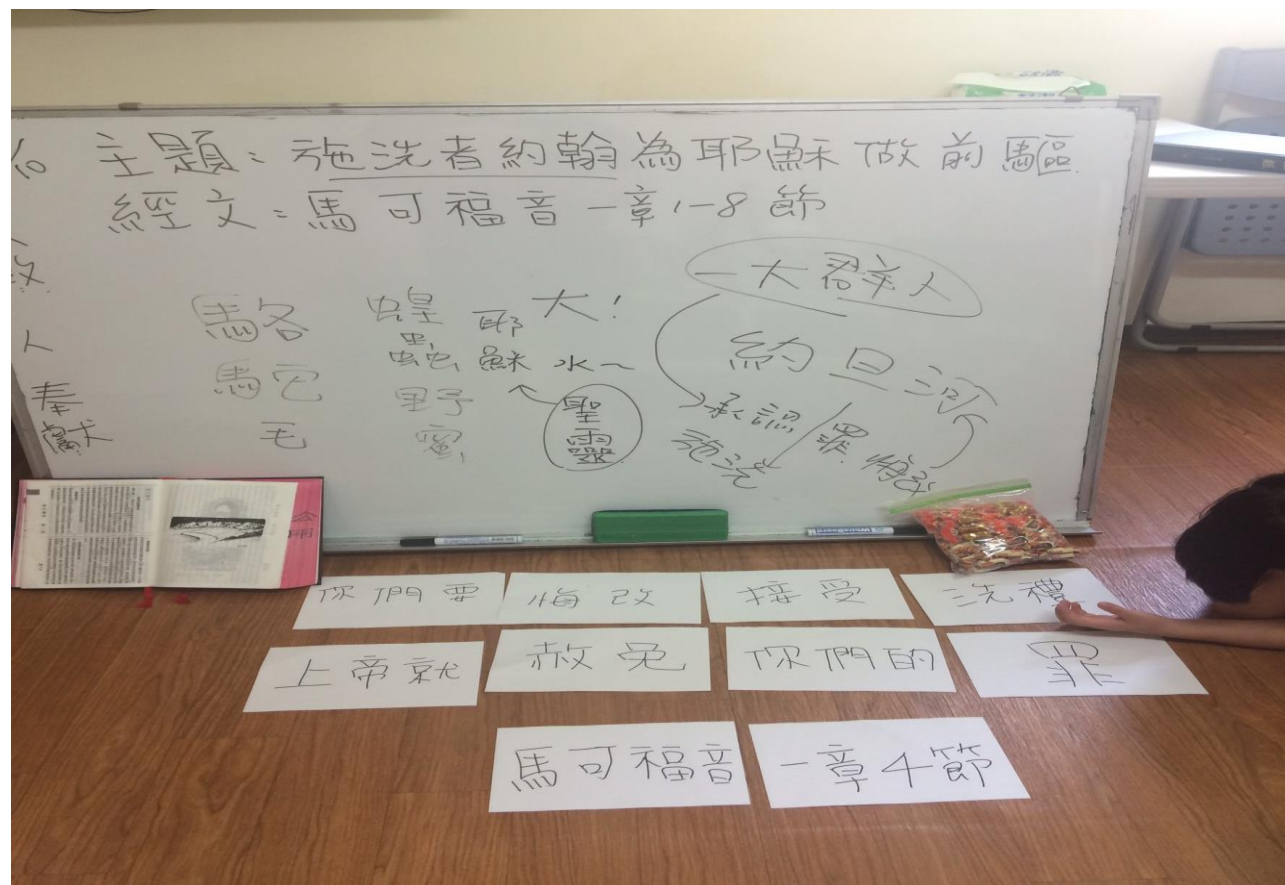 10 主題：施洗者約翰為耶穌做前驅
經文：馬可福音一章1-8節
人
奉獻
駱駝毛
蝗蟲
野蜜
耶穌
大！
水~
聖靈
一大群人
約旦河
承認罪 悔改
施洗
WhiteBoard
你們要 悔改 接受 洗禮
上帝就 赦免 你們的 罪
馬可福音 一章4節